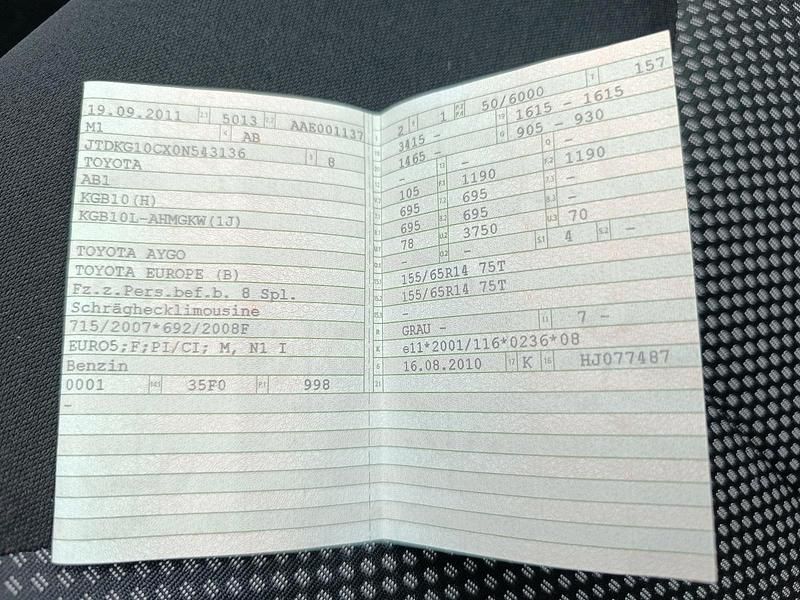 19.09.2011 2.1 5013 2.2 AAE001137
M1 4 AB
JTDKG10CX0N543136 3 8
TOYOTA
AB1
KGB10(H)
KGB10L-AHMGKW(1J)
TOYOTA AYGO
TOYOTA EUROPE (B)
Fz.z.Pers.bef.b. 8 Spl.
Schräghecklimousine
715/2007*692/2008F
EURO5;F;PI/CI; M, N1 I
Benzin
0001 35F0 P.1 998
-
2 1 50/6000 T 157
3415 - 19 1615 - 1615
1465 - 905 - 930
- - -
105 1190 F.2 1190
695 695 -
695 695 -
78 3750 U.3 70
- - S.1 4 S.2 -
155/65R14 75T
155/65R14 75T
-
R GRAU - 11 7 -
K e11*2001/116*0236*08
6 16.08.2010 17 K 16 HJ077487
21